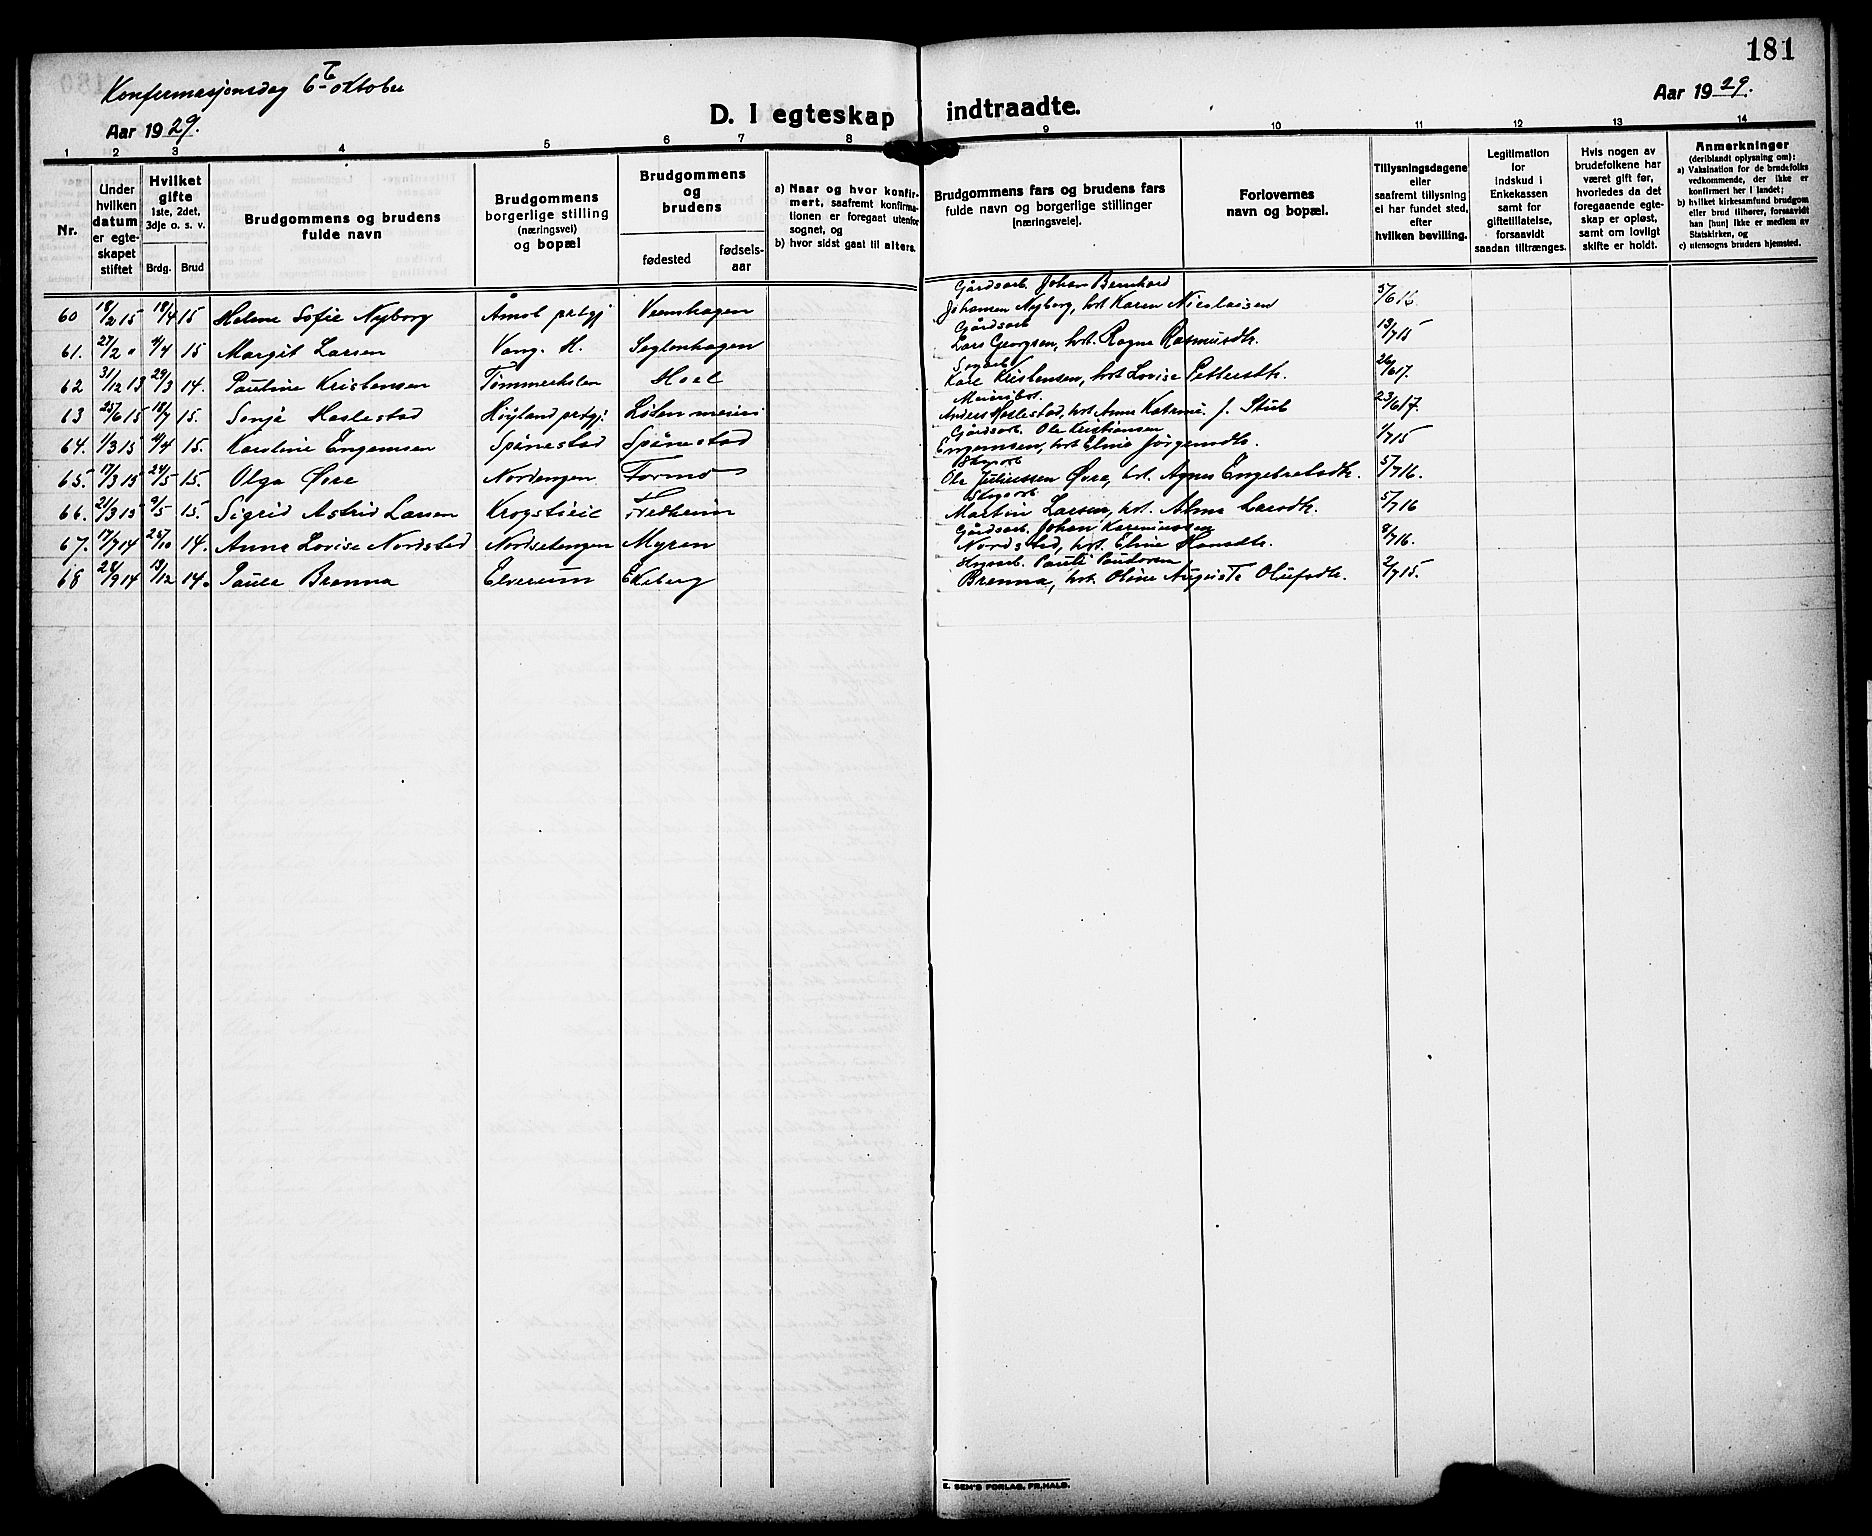 181
Konfirmasjonsdag 6te oktober
Aar 1929.
D. I egteskap indtraadte.
Aar 1929.
1 2 3 4 5 6 7 8 9 10 11 12 13 14
Nr.
Under hvilken datum er egteskapet stiftet
Hvilket gifte 1ste, 2det, 3dje o. s. v.
Brdg. Brud
Brudgommens og brudens fulde navn
Brudgommens borgerlige stilling (næringsvei) og bopæl
Brudgommens og brudens
fødested fødselsaar
a) Naar og hvor konfirmert, saafremt konfirmationen er foregaat utenfor sognet, og
b) hvor sidst gaat til alters.
Brudgommens fars og brudens fars fulde navn og borgerlige stillinger (næringsveie).
Forlovernes navn og bopæl.
Tillysningsdagene eller saafremt tillysning ei har fundet sted, efter hvilken bevilling.
Legitimation for Indskud i Enkekassen samt for giftetillatelse, forsaavidt saadan tiltrænges.
Hvis nogen av brudefolkene har været gift før, hvorledes da det foregaaende egteskap er opløst, samt om lovligt skifte er holdt.
Anmerkninger (deriblandt oplysning om):
a) Vaksination for de brudefolks vedkommende, der ikke er konfirmert her i landet;
b) hvilket kirkesamfund brudgom eller brud tilhører, forsaavidt han [hun] ikke er medlem av Statskirken, og
c) utensogns bruders hjemsted.
60 18/2 15 18/4 15 Helene Sofie Nyborg Åmot prstgj Veenshagen Gårdsarb. Johan Bernhard Johansen Nyborg, hst. Karen Nicolaisen 5/6 16
61. 27/2 " 4/4 15 Margit Larsen Vang. H. Seglenhagen Gårdsarb Lars Georgsen, hst. Ragna Rasmusdtr. 13/7 15
62 31/12 13 29/3 14. Pauline Kristensen Tømmerholen Hoel Karl Kristensen, hst. Lovise Pettersdtr. 26/6 17.
63 25/6 15 18/7 15. Sonja Haslestad Høyland prstgj. Løten meieri Meieribst. Anders Haslestad, hst. Anna Katrine f. Stub 23/6 17.
64. 1/3 15 4/4 15. Karoline Engemsen Spånestad Spånestad Gårdsarb. Ole Kristiansen Engemsen, hst. Eline Jørgensdtr. 1/7 15
65. 17/3 15 24/5 15. Olga Øvre Nordengen Formo Skogarb Ole Juliussen Øvre, hst. Agnes Engebretsdtr. 5/7 16.
66. 21/3 15 9/5 15. Sigrid Astrid Larsen Krogstieie Fredheim Skogarb. Martin Larsen, hst. Alma Larsdtr. 5/7 16
67. 17/7 14 25/10 14. Anna Lovise Nordstad Nordsetengen Myren Gårdsarb. Johan Kareniussen Nordstad, hst. Eline Hansdtr. 8/7 16.
68 24/9 14 13/12 14. Paula Brenna Elverum Ekeberg Brenna, hst. Oline Auguste Olufsdtr. 2/7 15.
E. SEM'S FORLAG, FR.HALD.